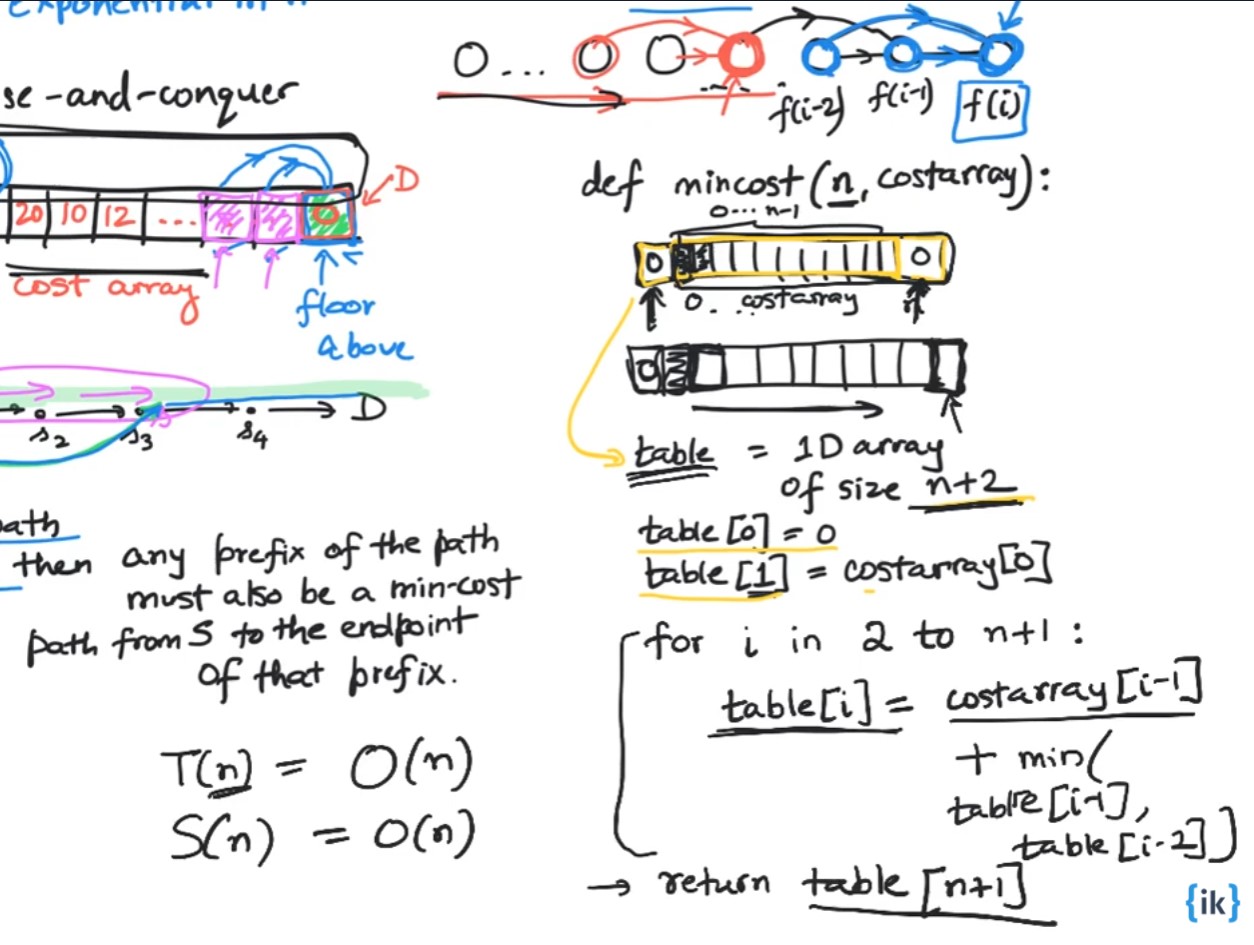 exponential in n
se-and-conquer
20 10 12 ... 0
D
cost array
floor
above
s2 s3 s4 D
path
then any prefix of the path
must also be a min-cost
path from S to the endpoint
of that prefix.
T(n) = O(n)
S(n) = O(n)
...
f(i-2) f(i-1) f(i)
def mincost(n, costarray):
0...n-1
0 0
0... costarray n
0
table = 1D array
of size n+2
table[0] = 0
table[1] = costarray[0]
for i in 2 to n+1:
table[i] = costarray[i-1]
+ min(
table[i-1],
table[i-2])
→ return table[n+1]
{ik}